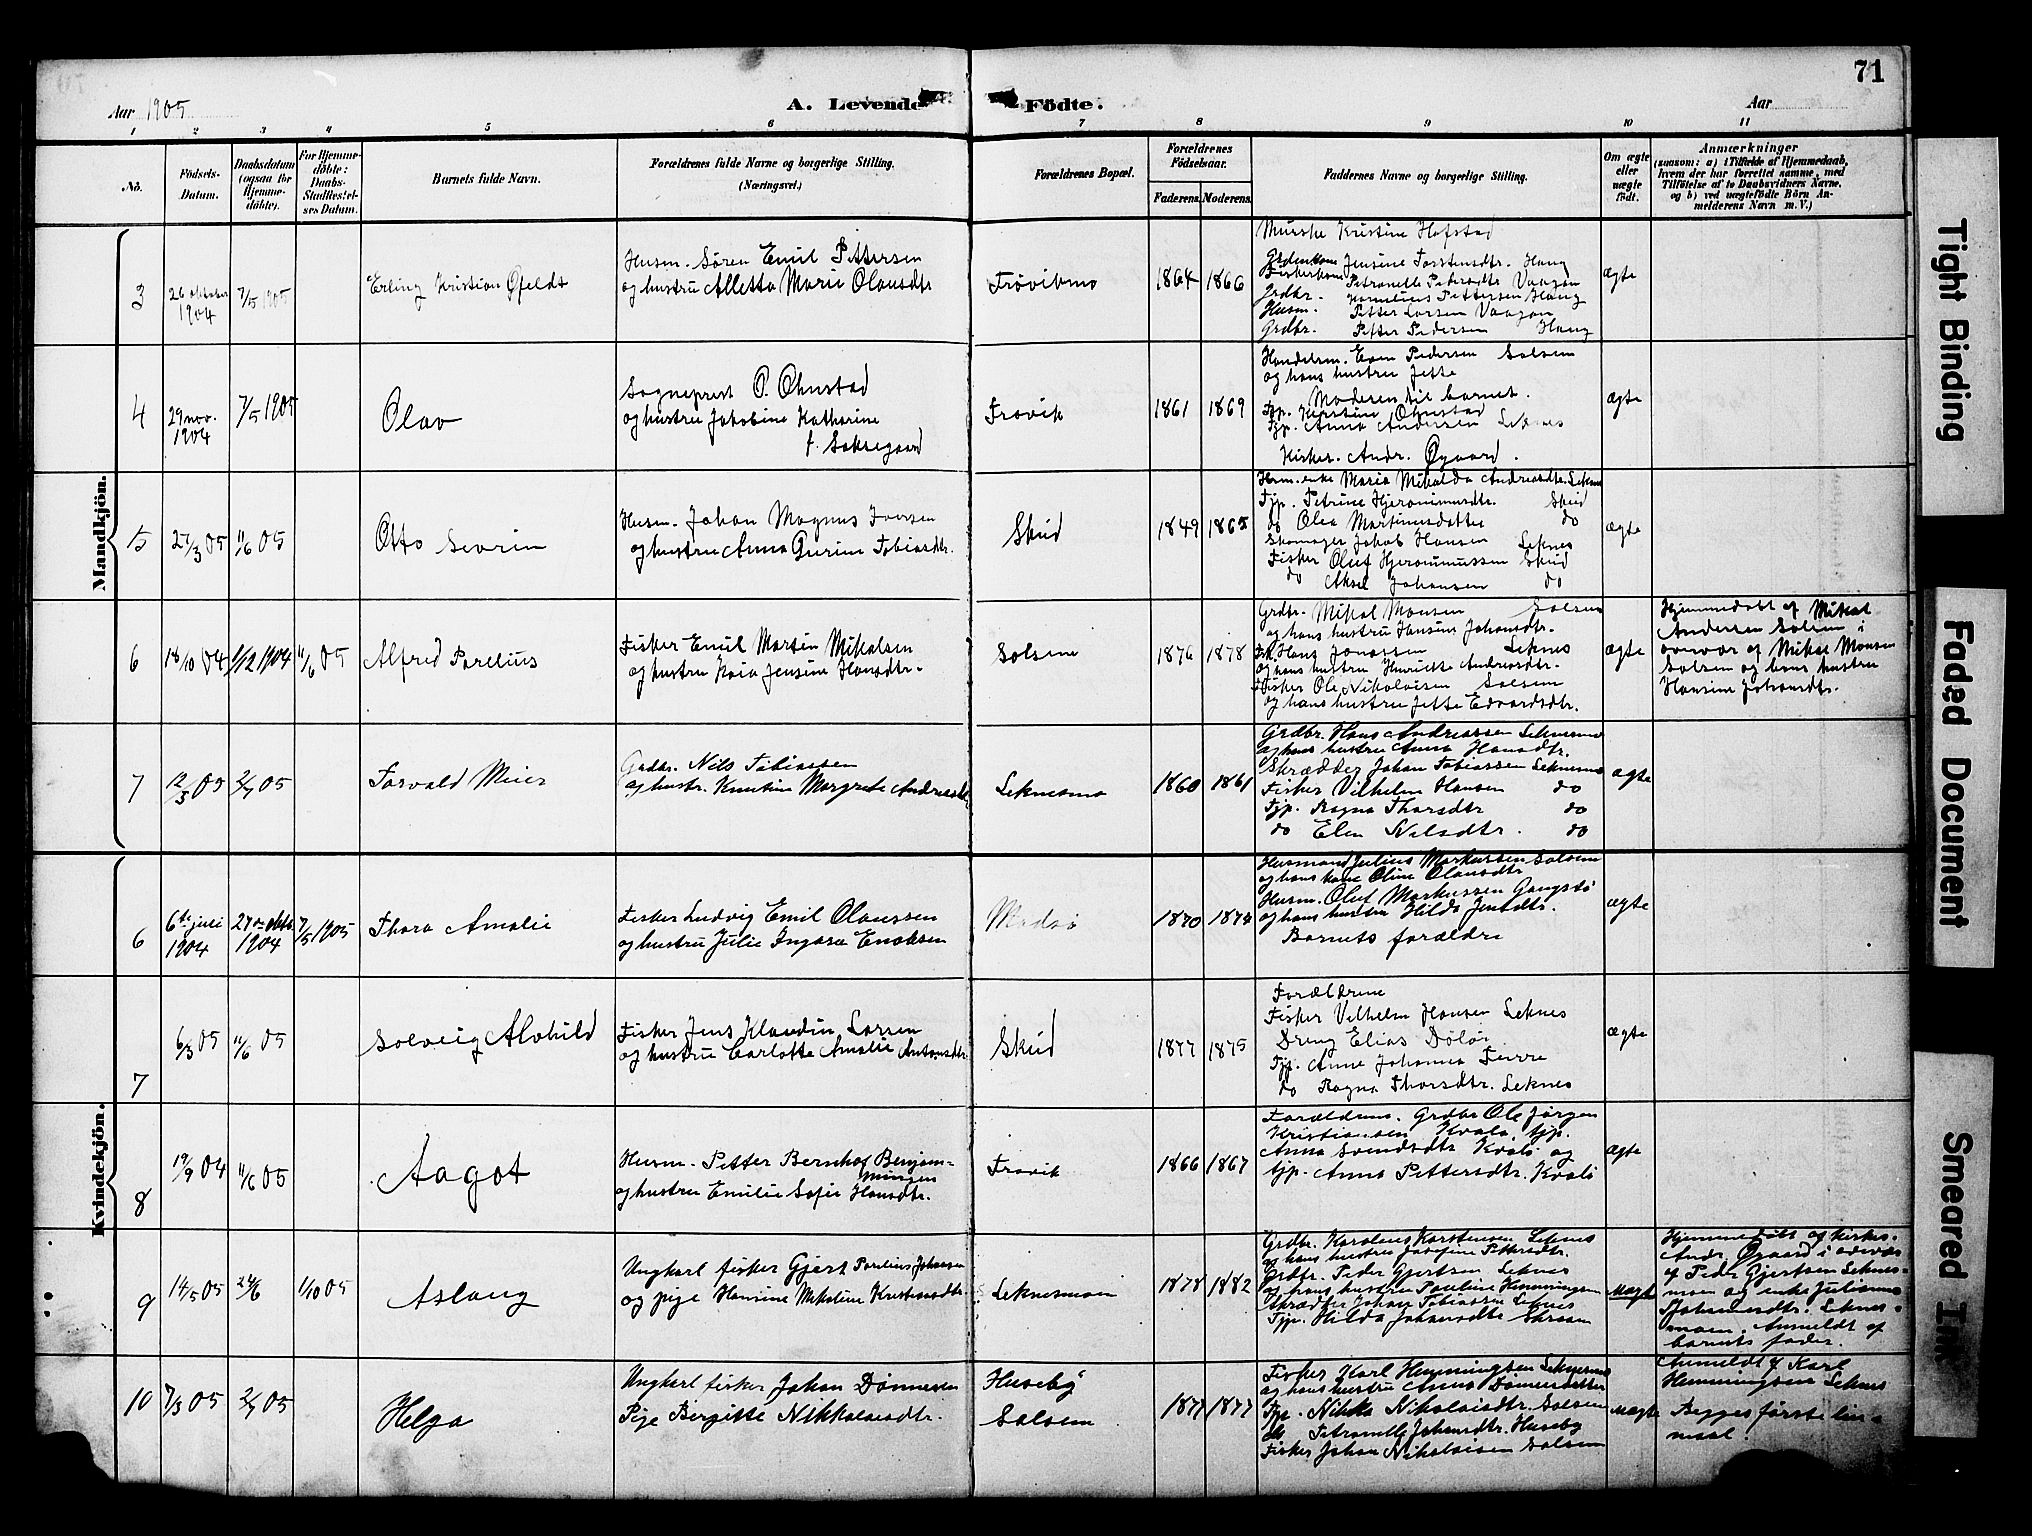 71
Aar 1905
A. Levende Födte.
Aar
1 2 3 4 5 6 7 8 9 10 11
No.
Födsels-Datum.
Daabsdatum (ogsaa for Hjemme-döbte).
For Hjemme-döbte: Daabs-Stadfæstel-ses Datum.
Barnets fulde Navn.
Forældrenes fulde Navne og borgerlige Stilling.
(Næringsvei.)
Forældrenes Bopæl.
Forældrenes Födselsaar.
Faderens. Moderens.
Faddernes Navne og borgerlige Stilling.
Om ægte eller uægte födt.
Anmærkninger
(saasom: a) i Tilfælde af Hjemmedaab,
hvem der har forrettet samme, med
Tilföielse af to Daabsvidners Navne,
og b) ved uægtefödte Börn An-
melderens Navn m. V.)
Mandkjön.
3
26 oktober
1904
7/5 1905
Erling Kristian Øfeldt
Husm. Søren Emil Pettersen
og hustru Alletta Marie Olausdtr
Frøvikmo
1864 1866
Kristine Hofstad
Jensine Torstensdtr. Haug
Petronelle Vaagan
Grdbr. Kornelius Pettersen Haug
Husm. Petter Larsen Vaagan
Grdbr. Petter Pedersen Haug
ægte
4
29 nov.
1904
7/5 1905
Olav
Sogneprest O. Ohnstad
og hustru Jakobine Katharine
f. Saksegaard
Frøvik
1861 1869
Handelsm. Even Pedersen Solsem
og hans hustru Jette
Moderen til barnet.
Tjp. Kirstine Ohnstad
Tjp. Anna Andersen Leknes
Kirkes. Andr. Øgaard.
ægte
5
27/3 05
11/6 05
Otto Sevrin
Husm. Johan Magnus Iversen
og hustru Anna Gurine Tobiasdtr.
Skeid
1849 1865
Husm. enke Maria Mikalda Andreasdtr. Leknes
Tjp. Petrine Hjeronimusdtr. Skeid
do Olea Martinusdatter do
Skomager Jakob Hansen Leknes
Fisker Oluf Hjeronimussen Skeid
do Aksel Johansen do
ægte
6
18/10 04
1/12 1904
11/6 05
Alfred Parelius
Fisker Emil Martin Mikalsen
og hustru Kaia Jensine Hansdtr.
Solsem
1876 1878
Grdbr. Mikal Monsen Solsem
og hans hustru Hansine Johansdtr.
Hans Jonassen Leknes
og hans hustru Henriette Andreasdtr.
Fisker Ole Nikolaisen Solsem
og hans hustru Jette Edvardsdtr.
ægte
Hjemmedøbt af Mikal
Andersen Solsem i
overvær af Mikal Monsen
Solsem og hans hustru
Hansine Johansdtr.
7
12/3 05
2/7 05
Torvald Meier
Grdbr. Nils Tobiassen
og hustr. Kirstine Margrete Andreasdtr
Leknesmo
1860 1861
Grdbr. Hans Andreassen Leknesmo
og hans hustru Anna Hansdtr.
Skrædder Johan Tobiassen Leknesmo
Fisker Vilhelm Hansen do
Tjp. Ragna Thorsdtr do
do Elen Nilsdtr. do
ægte
Kvindekjön.
6
6te juli
1904
27de oktb.
1904
7/5 1905
Thora Amalie
Fisker Ludvig Emil Olaussen
og hustru Julie Ingara Enoksen
Madsø
1870 1874
Husmand Julius Markussen Solsem
og hans kone Oline Olausdtr
Husm. Oluf Markussen Gangstø
og hans hustru Hilda Jensdtr.
Barnets forældre
ægte
7
6/3 05
11/6 05
Solveig Alvhild
Fisker Jens Klaudin Larsen
og hustru Carlotte Amalie Antonsdtr.
Skeid
1877 1875
Forældrene
Fisker Vilhelm Hansen Leknes
Dreng Elias Dølør
Tjp. Anne Johanna Leirre
do Ragna Thorsdtr. Leknes
ægte
8
19/9 04
11/6 05
Aagot
Husm. Petter Bernhof Benjam-
minsen
og hustru Emilie Sofie Hansdtr.
Frøvik
1866 1867
Forældrene. Grdbr Ole Jørgen
Kristiansen Kvalø, tjp.
Anna Svendsdtr Kvalø og
tjp. Anna Pettersdtr. Kvalø
ægte
9
14/5 05
24/6
1/10 05
Aslaug
Ungkarl fisker Gjert Parelius Johansen
og pige Hansine Mikaline Kristiansdtr
Leknesmoen
1878 1882
Grdbr. Karolius Karstensen Leknes
og hans hustru Josefine Pettersdtr.
Grdbr. Peder Gjertsen Leknes
og hans hustru Pauline Henningsen
Skrædder Johan Tobiassen Leknes
Tjp. Hilda Johansdtr
uægte
Hjemmedøbt af kirkes.
Andr. Øgaard i overvær
af Peder Gjertsen Leknes-
moen og enke Julianna
Johansdtr. Leknes-
moen. Anmeldt af
barnets fader.
10
7/3 05
2/7 05
Helga
Ungkarl fisker Johan Dønnesen
Pige Bergitte Nikkolaisdtr.
Huseby
Solsem
1877 1877
Fisker Karl Henningsen Leknesmo
og hans hustru Anna Dønnesdatter
Tjp. Nikka Nikolaisdtr. Solsem
do Petronelle Johansdtr. Huseby
Fisker Johan Nikolaisen Solsem
uægte
Anmeldt af Karl
Henningsen Leknes
Begges første leier-
maal.
Tight Binding
Faded Document
Smeared Ink